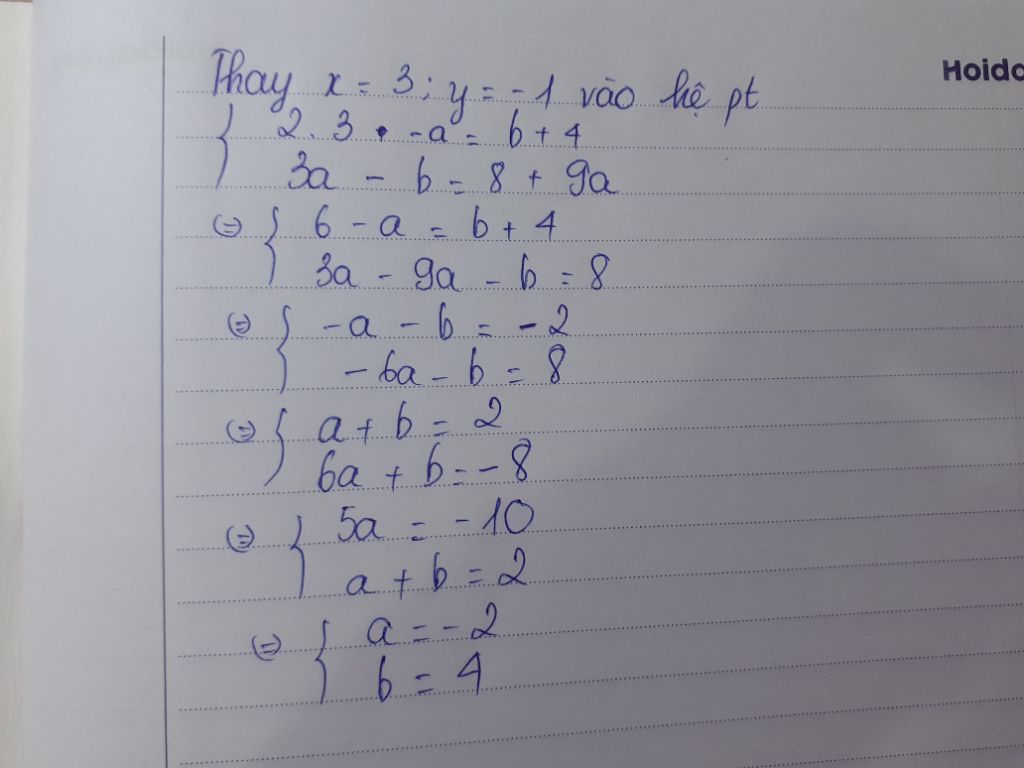 Thay x = 3 ; y = -1 vào hệ pt
Hoidc
{ 2. 3 • -a = b + 4
3a - b = 8 + 9a
(=) { 6 - a = b + 4
3a - 9a - b = 8
(=) { -a - b = -2
-6a - b = 8
(=) { a + b = 2
6a + b = -8
(=) { 5a = -10
a + b = 2
(=) { a = -2
b = 4